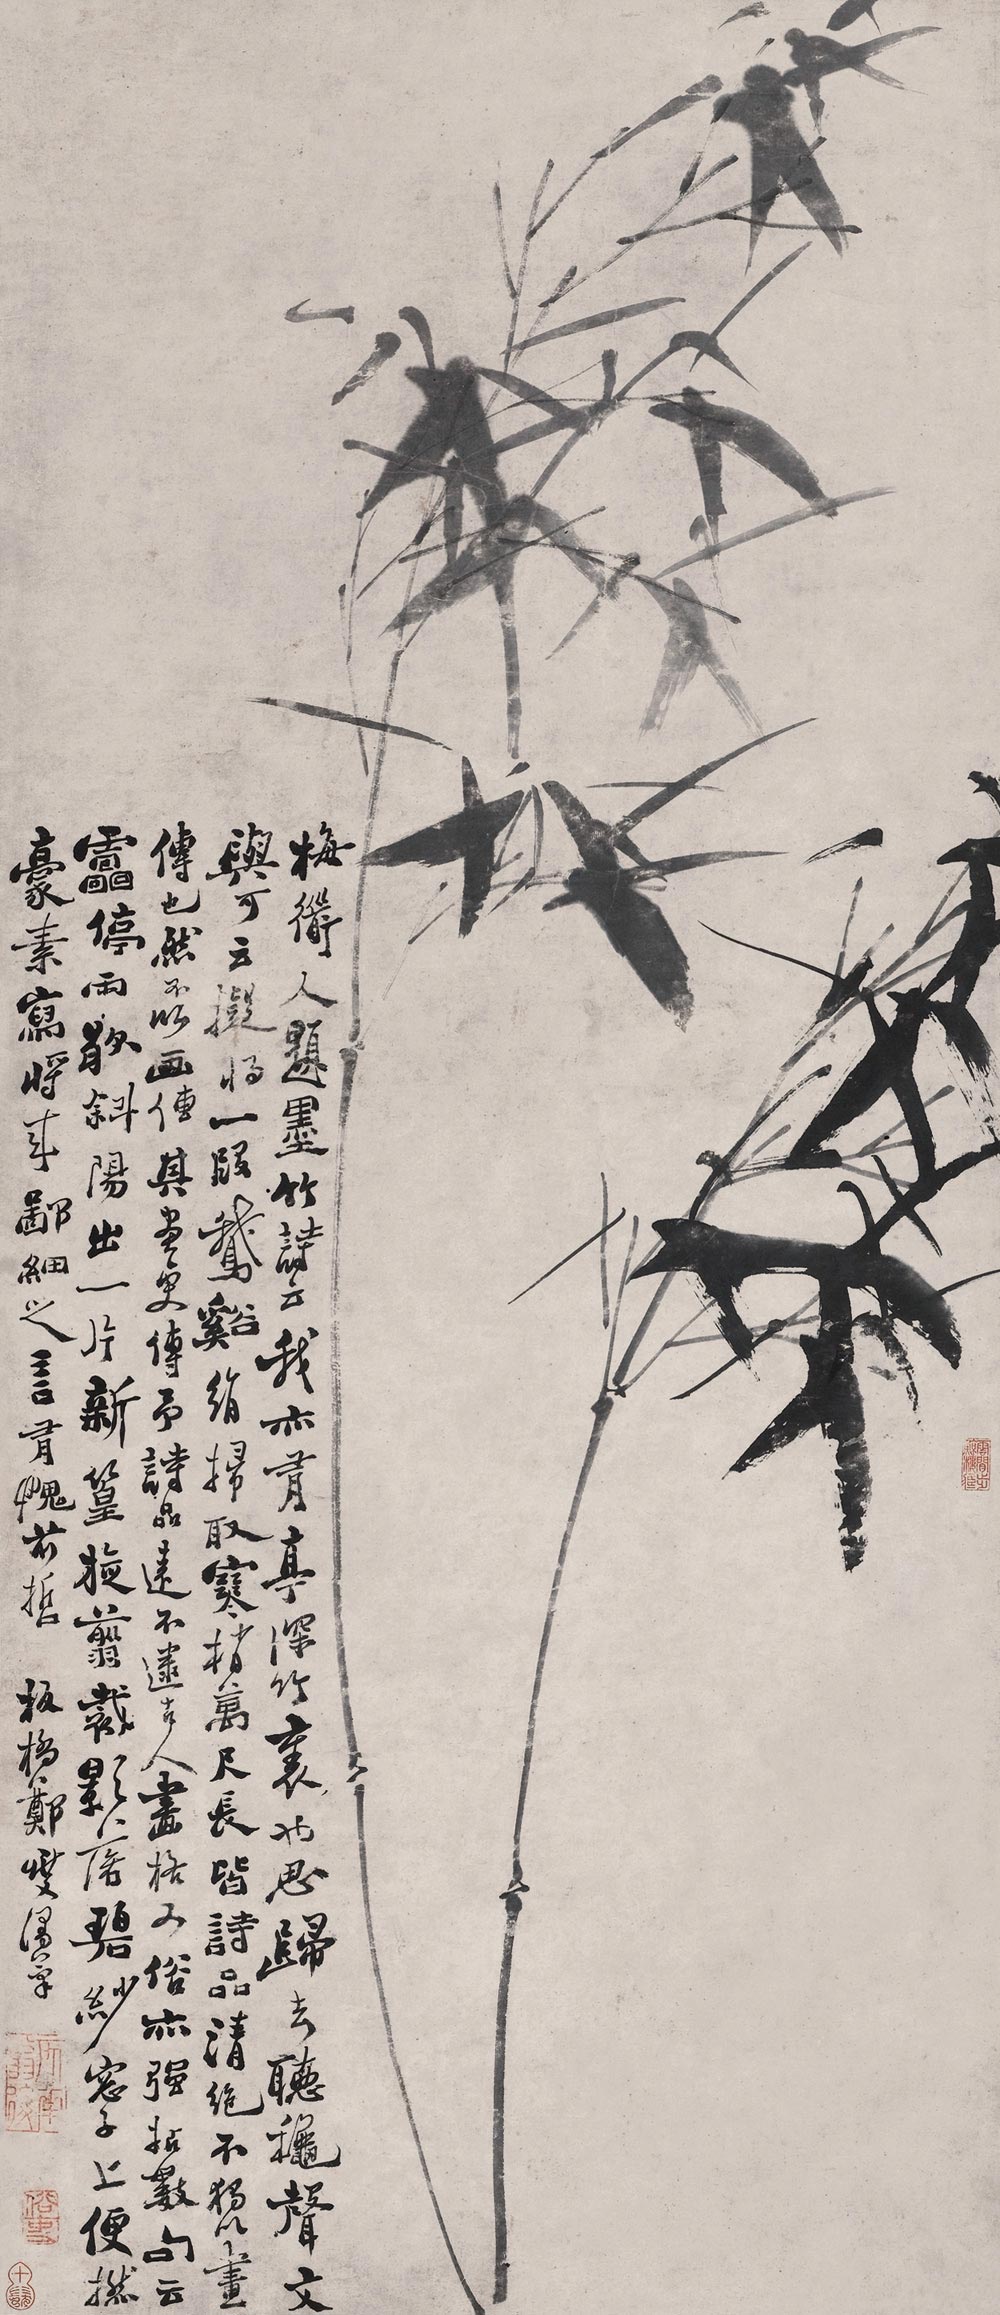 梅衜人題墨竹詩云我亦有亭深竹裏也思歸去聽穐聲文
與可云擬將一段鵞谿絹掃取寒梢萬尺長皆詩品清絶不獨以畫
傳也然不以画傳其畫更傳予詩品遠不逮古人畫格又俗亦强拈數句云
靁停雨歇斜陽出一片新篁旋翦裁影落碧紗窓子上便撚
豪素寫將來鄙細之言有愧前哲 板橋鄭燮漫筆